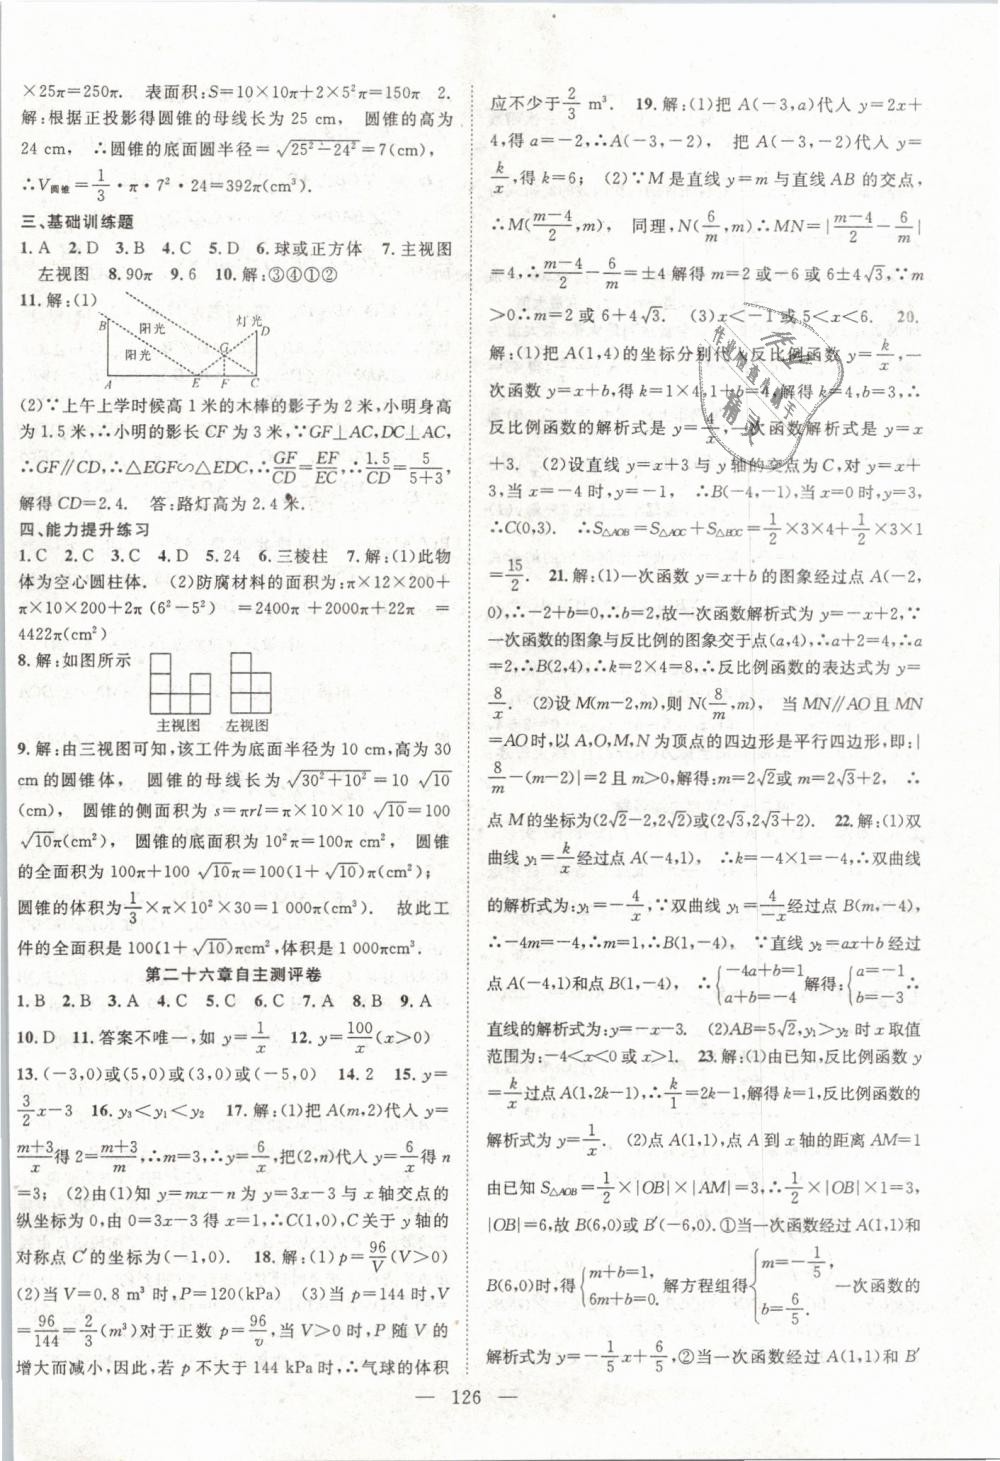 ×25π=250π. 表面积:S=10×10π+2×5²π=150π 2.
解:根据正投影得圆锥的母线长为 25 cm, 圆锥的高为
24 cm, ∴圆锥的底面圆半径=√(25²-24²)=7(cm),
∴V圆锥=1/3·π·7²·24=392π(cm³).
三、基础训练题
1. A 2. D 3. B 4. C 5. D 6. 球或正方体 7. 主视图
左视图 8. 90π 9. 6 10. 解:③④①②
11. 解:(1)
B 阳光 灯光 D
阳光 G
A E F C
(2)∵上午上学时候高 1 米的木棒的影子为 2 米,小明身高
为 1.5 米,∴小明的影长 CF 为 3 米,∵GF⊥AC,DC⊥AC,
∴GF∥CD,∴△EGF∽△EDC,∴GF/CD=EF/EC,∴1.5/CD=5/(5+3),
解得 CD=2.4. 答:路灯高为 2.4 米.
四、能力提升练习
1. C 2. C 3. C 4. D 5. 24 6. 三棱柱 7. 解:(1)此物
体为空心圆柱体. (2)防腐材料的面积为:π×12×200+
π×10×200+2π(6²-5²)=2400π+2000π+22π=
4422π(cm²)
8. 解:如图所示
主视图 左视图
9. 解:由三视图可知,该工件为底面半径为 10 cm,高为 30
cm 的圆锥体, 圆锥的母线长为√(30²+10²)=10 √10
(cm), 圆锥的侧面积为 s=πrl=π×10×10 √10=100
√10π(cm²), 圆锥的底面积为 10²π=100π cm², 圆锥
的全面积为 100π+100 √10π=100(1+√10)π(cm²);
圆锥的体积为1/3×π×10²×30=1 000π(cm³). 故此工
件的全面积是 100(1+√10)πcm²,体积是 1 000πcm³.
第二十六章自主测评卷
1. B 2. B 3. A 4. C 5. C 6. C 7. A 8. B 9. A
10. D 11. 答案不唯一,如 y=1/x 12. y=100/x(x>0)
13. (-3,0)或(5,0)或(3,0)或(-5,0) 14. 2 15. y=
3/2x-3 16. y₃<y₁<y₂ 17. 解:(1)把 A(m,2)代人 y=
(m+3)/x得 2=(m+3)/m,∴m=3,∴y=6/x,把(2,n)代人 y=6/x得 n
=3; (2)由(1)知 y=mx-n 为 y=3x-3 与 x 轴交点的
纵坐标为 0,由 0=3x-3 得 x=1,∴C(1,0),C 关于 y 轴的
对称点 C′的坐标为(-1,0). 18. 解:(1)p=96/V(V>0)
(2)当 V=0.8 m³ 时,P=120(kPa) (3)当 p=144 时,V
=96/144=2/3(m³)对于正数 p=96/v,当 V>0 时,P 随 V 的
增大而减小,因此,若 p 不大于 144 kPa时,∴气球的体积
应不少于2/3 m³. 19. 解:(1)把 A(-3,a)代人 y=2x+
4,得 a=-2,∴A(-3,-2), 把 A(-3,-2)代人 y=
k/x,得 k=6; (2)∵M 是直线 y=m 与直线 AB 的交点,
∴M((m-4)/2,m), 同理,N(6/m,m)∴MN=|(m-4)/2-6/m|
=4,∴(m-4)/2-6/m=±4 解得 m=2 或-6 或 6±4√3,∵m
>0∴m=2 或 6+4√3. (3)x<-1 或 5<x<6. 20.
解:(1)把 A(1,4)的坐标分别代人反比例函数 y=k/x,一
次函数 y=x+b,得 k=1×4,1+b=4,解得 k=4,b=3,∴
反比例函数的解析式是 y=4/x,一次函数解析式是 y=x
+3. (2)设直线 y=x+3 与 y 轴的交点为 C,对 y=x+
3,当 x=-4 时,y=-1, ∴B(-4,-1),当 x=0 时,y=3,
∴C(0,3). ∴S△AOB=S△AOC+S△BOC=1/2×3×4+1/2×3×1
=15/2. 21. 解:(1)一次函数 y=x+b 的图象经过点 A(-2,
0),∴-2+b=0,∴b=2,故一次函数解析式为 y=-x+2,∵
一次函数的图象与反比例的图象交于点(a,4),∴a+2=4,∴a
=2,∴B(2,4),∴k=2×4=8,∴反比例函数的表达式为 y=
8/x. (2)设 M(m-2,m),则 N(8/m,m), 当 MN∥AO且 MN
=AO时,以 A,O,M,N 为顶点的四边形是平行四边形,即:|
8/m-(m-2)|=2 且 m>0,解得:m=2√2或 m=2√3+2, ∴
点 M的坐标为(2√2-2,2√2)或(2√3,2√3+2). 22. 解:(1)双
曲线 y₁=k/x经过点 A(-4,1), ∴k=-4×1=-4,∴双曲线
的解析式为:y₁=-4/x,∵双曲线 y₁=4/-x经过点 B(m,-4),
∴-4m=-4,∴m=1,∴B(1,-4), ∵直线 y₂=ax+b 经过
点 A(-4,1)和点 B(1,-4),∴{-4a+b=1 a+b=-4 解得:{a=-1 b=-3,∴
直线的解析式为:y=-x-3. (2)AB=5√2,y₁>y₂ 时 x 取值
范围为:-4<x<0 或 x>1. 23. 解:(1)由已知,反比例函数 y
=k/x过点 A(1,2k-1),∴k/1=2k-1,解得 k=1,反比例函数的
解析式为 y=1/x. (2)点 A(1,1),点 A 到 x 轴的距离 AM=1
由已知 S△AOB=1/2×|OB|×|AM|=3,∴1/2×|OB|×1=3,
|OB|=6,故 B(6,0)或 B′(-6,0).①当一次函数经过 A(1,1)和
B(6,0)时,得{m+b=1, 6m+b=0. 解方程组得{m=-1/5, b=6/5. 一次函数的
解析式为 y=-1/5x+6/5,②当一次函数经过 A(1,1)和 B′
— 126 —
作业
作业检查小助手
精灵